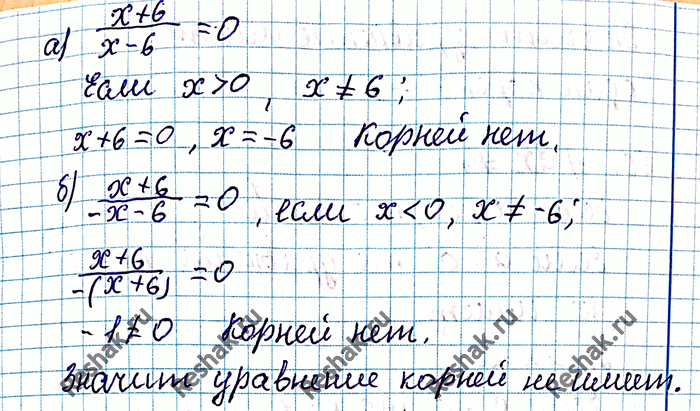 а) (x+6)/(x-6) = 0
Если x>0, x≠6;
x+6=0, x=-6 Корней нет.
б) (x+6)/(-x-6) = 0, если x<0, x≠-6;
(x+6)/(-(x+6)) = 0
-1≠0 Корней нет.
Значит уравнение корней не имеет.
reshak.ru
reshak.ru
reshak.ru
reshak.ru
reshak.ru